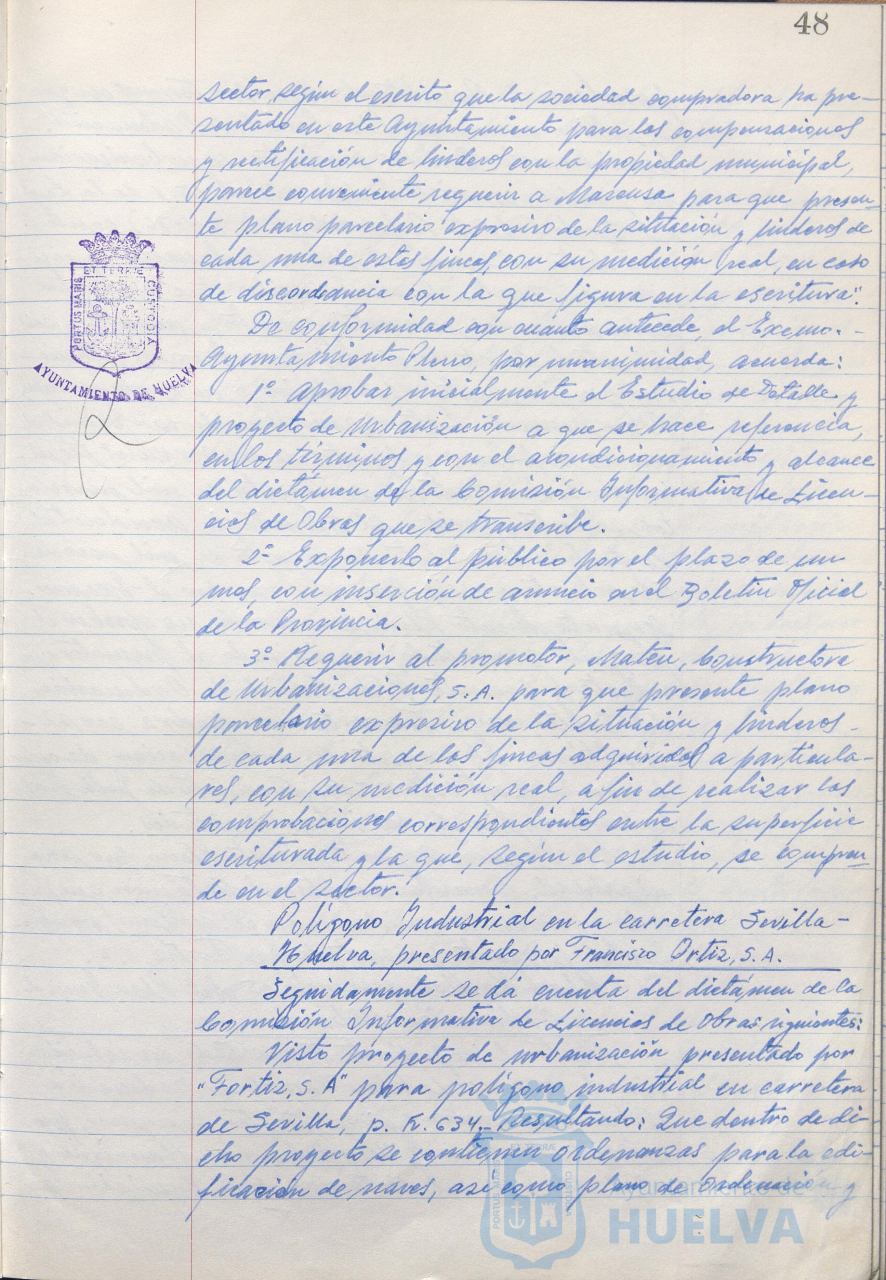 48
sector, según el escrito que la sociedad compradora ha pre-
sentado en este Ayuntamiento para las compensaciones
y rectificación de linderos con la propiedad municipal,
parece conveniente requerir a Macunsa para que presen-
te plano parcelario expresivo de la situación y linderos de
cada una de estas fincas, con su medición real, en caso
de discordancia con la que figura en la escritura".
De conformidad con cuanto antecede, el Excmo.-
Ayuntamiento Pleno, por unanimidad, acuerda:
1º Aprobar inicialmente el Estudio de Detalle y
proyecto de Urbanización a que se hace referencia,
en los términos, y con el acondicionamiento y alcance
del dictámen de la Comisión Informativa de Licen-
cias de Obras que se transcribe.
2º Exponerlo al público por el plazo de un
mes, con inserción de anuncio en el Boletín Oficial
de la Provincia.
3º Requerir al promotor, Mateu, Constructora
de Urbanizaciones, S.A. para que presente plano
parcelario expresivo de la situación y linderos-
de cada una de las fincas adquiridas a particula-
res, con su medición real, a fin de realizar las
comprobaciones correspondientes entre la superficie
escriturada y la que, según el estudio, se compren-
de en el sector.
Polígono Industrial en la carretera Sevilla-
Huelva, presentado por Francisco Ortiz, S.A.
Seguidamente se dá cuenta del dictámen de la
Comisión Informativa de Licencias de Obras siguientes:
Visto proyecto de urbanización presentado por
"Fortiz, S.A" para polígono industrial en carretera
de Sevilla, p. K. 634,- Resultando: Que dentro de di-
cho proyecto se contienen ordenanzas para la edi-
ficación de naves, así como plano de ordenación y
PORTUS MARIS
ET TERRÆ
CUSTODIA
AYUNTAMIENTO DE HUELVA
Ayuntamiento de
HUELVA